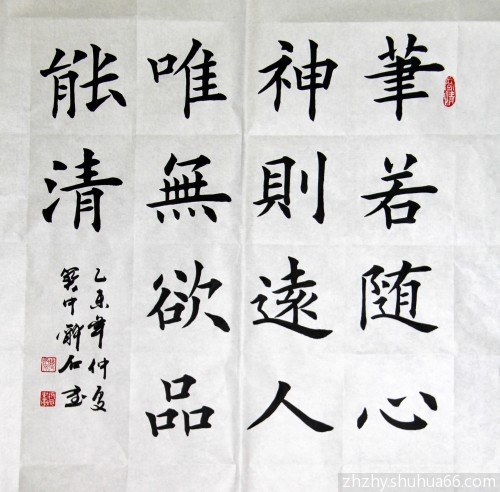 筆若随心
神則遠人
唯無欲品
能清
乙未年仲夏
zhzhy.shuhua66.com